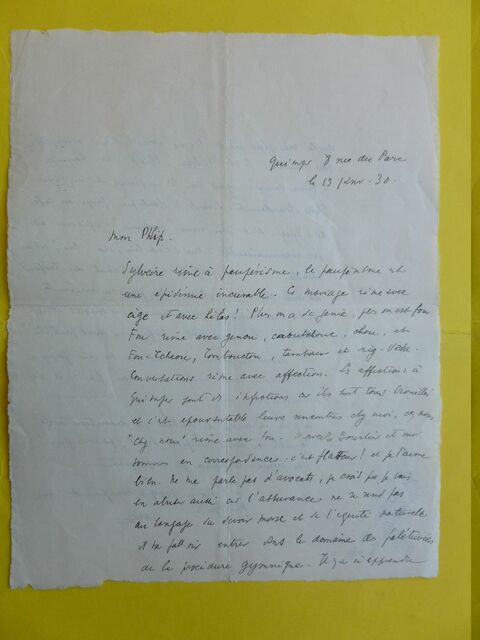 Quimper 8 rue du Parc
le 13 janv. 30.
mon Philip.
Sylvaire rime à paupérisme, le paupérisme est
une épidémie incurable. Ce mariage rime avec
âge et avec hélas! Plus on a de génie, plus on est fou
Fou rime avec genou, caoutchouc, chou, et
Fou-Tcheou, Tombouctou, tambour et rig-Véda.
Conversations rime avec affection. Les affections à
Quimper sont des infections car ils sont tous brouillés
et c'est épouvantable leurs rencontres chez moi, chez nous.
"Chez nous" rime avec fou. Marcel et moi
sommes en correspondance. c'est flatteur! et je l'aime
bien. Ne me parle pas d'avocats, je crois que je vais
en abuser aussi car l'assurance ne se rend pas
au langage du devoir moral et de l'équité naturelle
et va falloir entrer dans le domaine des
de la procédure gymnique. Il y a à apprendre